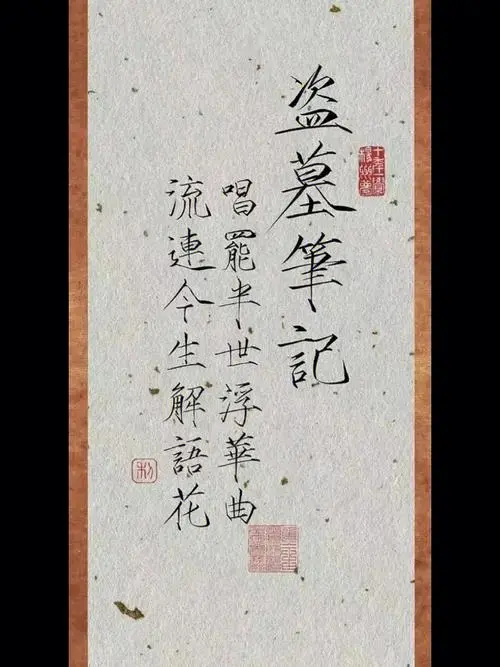 盗墓筆記
唱罷半世浮華曲
流連今生解語花